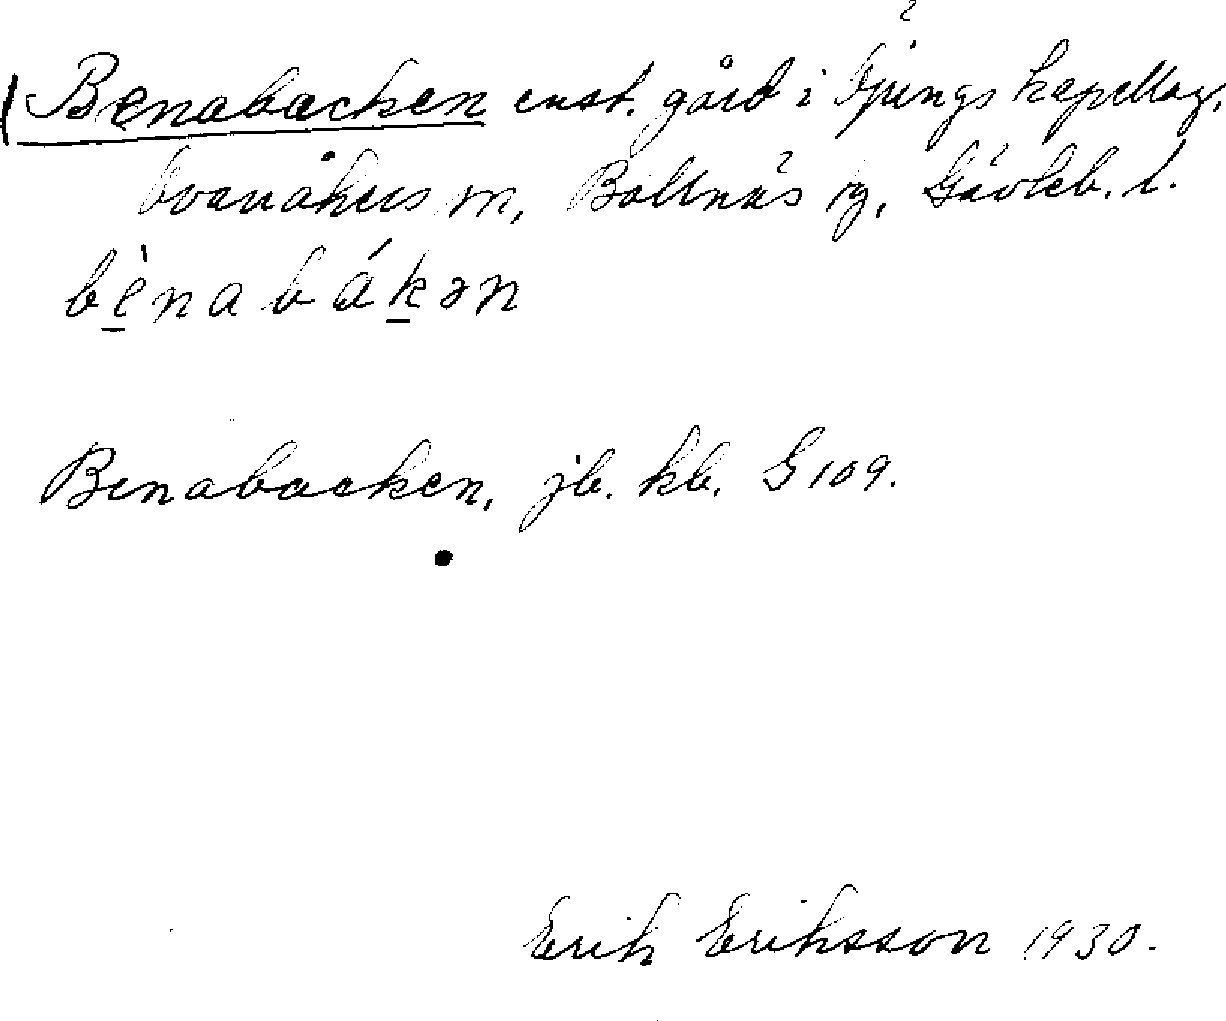 Benabacken enst. gård i Öjungs kapellag,
Ovanåkers sn, Bollnäs tg, Gävleb. l.
bènabákən
Benabacken, jb. kb. S 109.
Erik Eriksson 1930.